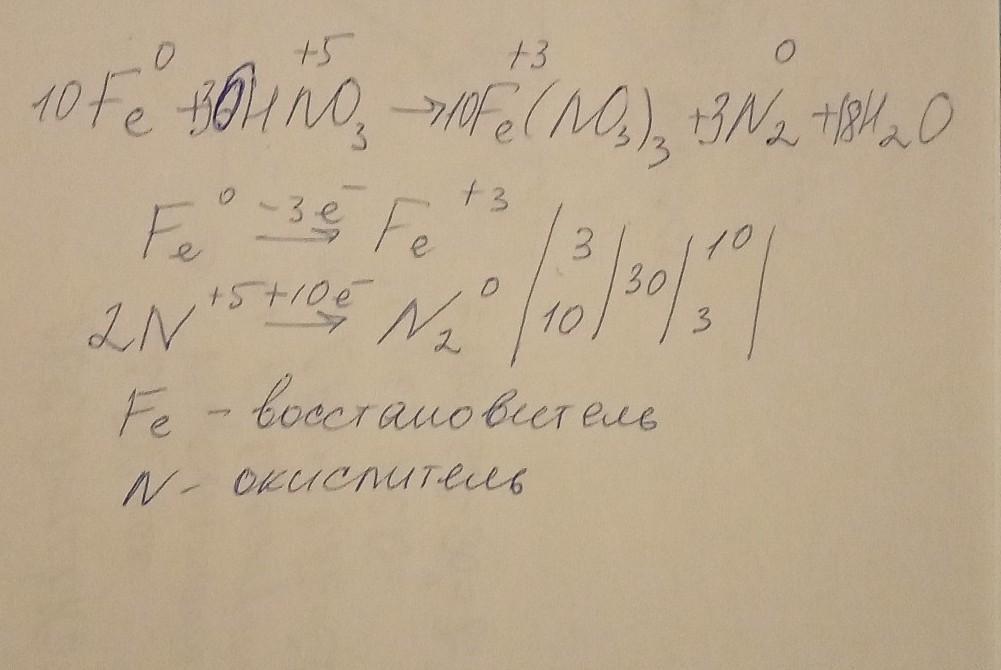 10Fe⁰ + 36HNO₃ → 10Fe(NO₃)₃ + 3N₂ + 18H₂O
0 +5 +3 0
Fe⁰ -3e⁻ → Fe⁺³ | 3 | 30 | 10 |
2N⁺⁵ +10e⁻ → N₂⁰ | 10 | | 3 |
Fe - восстановитель
N - окислитель